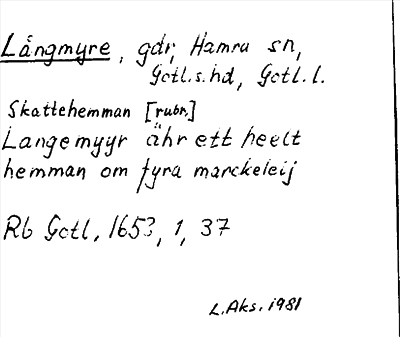 Långmyre, gdr, Hamra sn,
Gotl.s.hd, Gotl.l.
Skattehemman [rubr.]
Langemyyr ähr ett heelt
hemman om fyra marckeleij
Rb Gotl, 1653, 1, 37
L.Aks. 1981